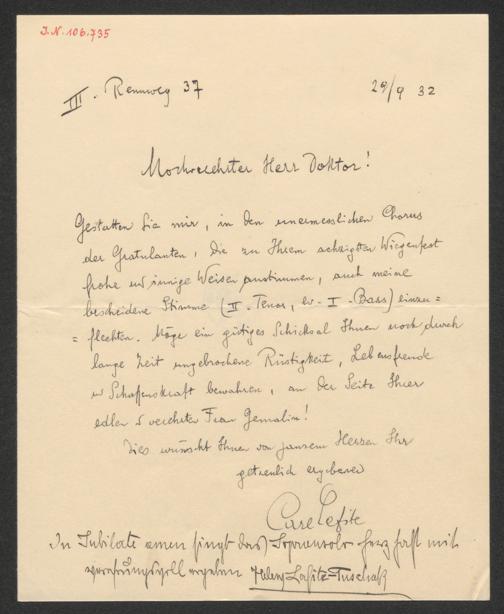 I.N. 106.735
III. Rennweg 37
29/9 32
Hochverehrter Herr Doktor!
Gestatten Sie mir, in den unermesslichen Chorus
der Gratulanten, die zu Ihrem achzigsten Wiegenfest
frohe und innige Weisen anstimmen, auch meine
bescheidene Stimme (II. Tenor, ev. I. Bass) einzu=
=flechten. Möge ein gütiges Schicksal Ihnen noch durch
lange Zeit ungebrochene Rüstigkeit, Lebensfreude
u Schaffenskraft bewahren, an der Seite Ihrer
edlen u verehrten Frau Gemalin!
Dies wünscht Ihnen von ganzem Herzen Ihr
getreulich ergebener
Carl Lafite
In Jubilate amen singt das Sopransolo
verehrungsvoll ergeben Helene Lafite-Tuschak